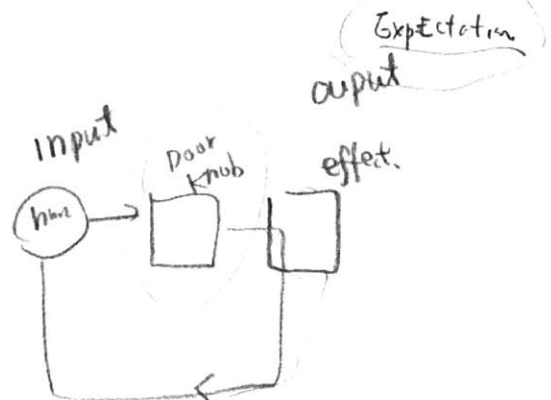 ExpEctation
ouput
input
Door
Knob
effect.